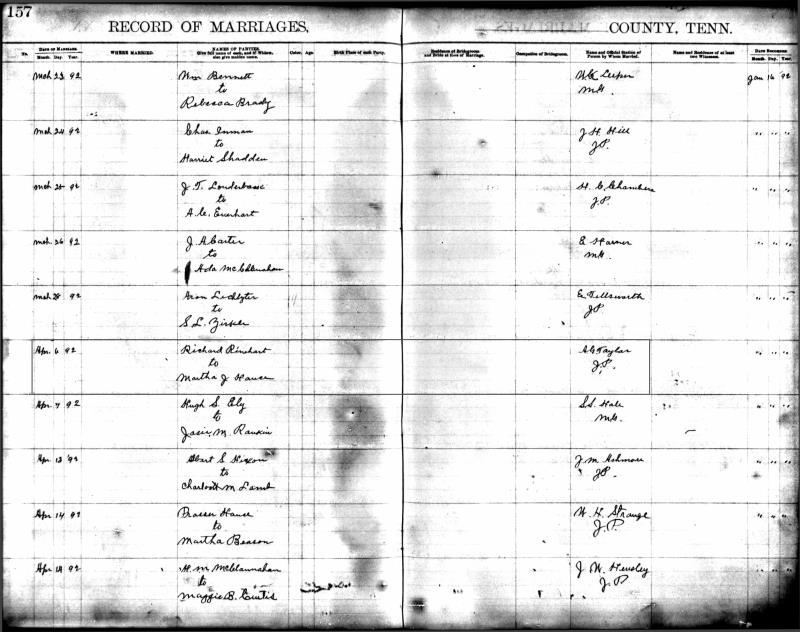 157
RECORD OF MARRIAGES,
COUNTY, TENN.
No.
DATE OF MARRIAGE.
Month. Day. Year.
WHERE MARRIED.
NAMES OF PARTIES.
Give full name of each, and if Widow,
also give maiden name.
Color.
Age.
Birth Place of each Party.
Residence of Bridegroom
and Bride at time of Marriage.
Occupation of Bridegroom.
Name and Official Station of
Person by Whom Married.
Name and Residence of at least
two Witnesses.
DATE RECORDED.
Month. Day. Year.
Mch 23 92 Wm Bennett
to
Rebecca Brady
W.C. Leeper
MG
Jan 16 92
Mch 24 92 Chas Inman
to
Harriet Shadden
J H Hill
J.P.
" " "
Mch 25 92 J. T. Louderback
to
A.C. Everhart
H. C. Chambers
J.P.
" " "
Mch 26 92 J. A Carter
to
Ada
E Harner
MG.
" " "
Mch 28 92
to
S L.
E.
JP
" " "
Apr. 6 92 Richard Rinehart
to
Martha J Hause
Taylor
J.P.
" " "
Apr. 7 92 Hugh S. Ely
to
M. Rankin
S.S. Hale
MG.
" " "
Apr. 13 92 S Hixon
to
M Lamb
J. M Ashmore
JP.
" " "
Apr 14 92 Hause
to
Martha Beason
W. H. Strange
J.P.
" " "
Apr 92 H. M
to
Maggie B. Curtis
J W. Hensley
J.P
" " "